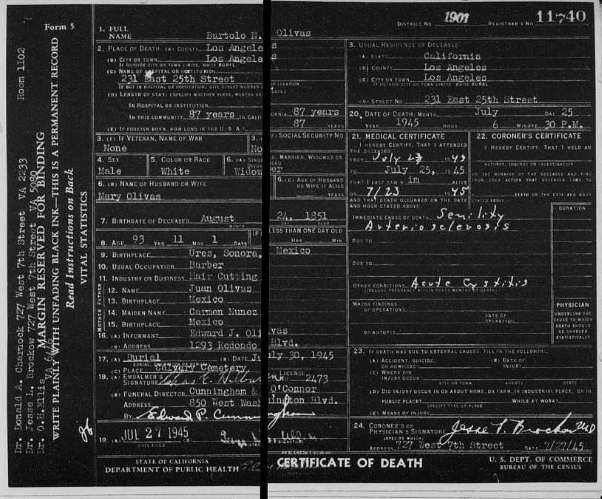 Form 5
Room 1102
Dr. Donald A. Charnock 727 West 7th Street VA 2233
Dr. Jesse L. Brockow 727 West 7th Street VA 5080
MARGIN RESERVED FOR BINDING
WRITE PLAINLY WITH UNFADING BLACK INK—THIS IS A PERMANENT RECORD
Read Instructions on Back
VITAL STATISTICS
DISTRICT NO. 1901 REGISTRAR'S NO. 11740
1. FULL NAME Bartolo N. Olivas
2. PLACE OF DEATH: (A) COUNTY Los Angeles
(B) CITY OR TOWN Los Angeles
IF OUTSIDE CITY OR TOWN LIMITS, WRITE RURAL
(C) NAME OF HOSPITAL OR INSTITUTION
231 East 25th Street
(D) LENGTH OF STAY:
IN HOSPITAL OR INSTITUTION
IN THIS COMMUNITY 87 years IN CALIF 87 years
(E) IF FOREIGN BORN, HOW LONG IN THE U.S.A.? 87 YEARS
3. USUAL RESIDENCE OF DECEASED
(A) STATE California
(B) COUNTY Los Angeles
(C) CITY OR TOWN Los Angeles
(D) STREET NO. 231 East 25th Street
3. (F) IF VETERAN, NAME OF WAR
None
SOCIAL SECURITY NO
4. SEX
Male
5. COLOR OR RACE
White
MARRIED, WIDOWED OR
6. (B) NAME OF HUSBAND OR WIFE
Mary Olivas
6. (C) AGE OF HUSBAND OR WIFE IF ALIVE
7. BIRTHDATE OF DECEASED August 24, 1851
8. AGE 93 YRS 11 MOS 1 DAYS
LESS THAN ONE DAY OLD
9. BIRTHPLACE Ures, Sonora, Mexico
10. USUAL OCCUPATION Barber
11. INDUSTRY OR BUSINESS Hair Cutting
12. NAME Juan Olivas
13. BIRTHPLACE Mexico
14. MAIDEN NAME Carmon Nunez
15. BIRTHPLACE Mexico
16. (A) INFORMANT Edward J. Olivas
(B) ADDRESS 1293 Redondo Blvd.
17. (A) Burial (B) DATE July 30, 1945
(C) PLACE Calvary Cemetery
18. (A) EMBALMER'S SIGNATURE LICENSE 2473
(B) FUNERAL DIRECTOR Cunningham & O'Connor
ADDRESS 850 West Washington Blvd.
BY Edward P. Cunningham
19. JUL 27 1945
20. DATE OF DEATH: MONTH July DAY 25
YEAR 1945 HOUR 6 MINUTE 30 P.M.
21. MEDICAL CERTIFICATE
I HEREBY CERTIFY, THAT I ATTENDED THE DECEASED
1945
TO July 25, 1945
THAT I LAST SAW him ALIVE
ON 7/23 1945
AND THAT DEATH OCCURRED ON THE DATE AND HOUR STATED ABOVE
22. CORONER'S CERTIFICATE
I HEREBY CERTIFY, THAT I HELD AN
DURATION
IMMEDIATE CAUSE OF DEATH Senility
Arteriosclerosis
DUE TO
DUE TO
OTHER CONDITIONS Acute Cystitis
MAJOR FINDINGS
OF OPERATIONS
DATE OF OPERATION
OF AUTOPSY
PHYSICIAN
UNDERLINE THE CAUSE TO WHICH DEATH SHOULD BE CHARGED STATISTICALLY
23. IF DEATH WAS DUE TO EXTERNAL CAUSES, FILL IN THE FOLLOWING
(A) ACCIDENT, SUICIDE, OR HOMICIDE (B) DATE OF INJURY
(C) WHERE DID INJURY OCCUR
(D) DID INJURY OCCUR IN OR ABOUT HOME, ON FARM, IN INDUSTRIAL PLACE, OR IN
PUBLIC PLACE? WHILE AT WORK
(E) MEANS OF INJURY
24. CORONER'S OR PHYSICIAN'S SIGNATURE Jesse L. Brockow MD
ADDRESS 727 West 7th Street DATE 7/27/45
STATE OF CALIFORNIA
DEPARTMENT OF PUBLIC HEALTH
CERTIFICATE OF DEATH
U. S. DEPT. OF COMMERCE
BUREAU OF THE CENSUS